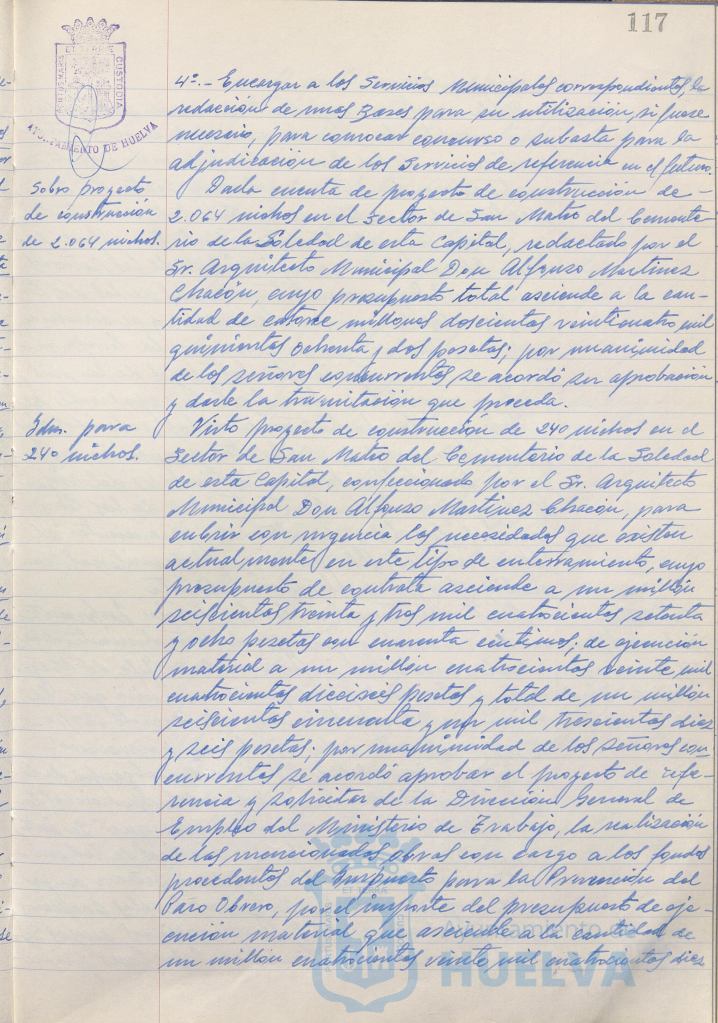 117
PORTUS MARIS
ET TERRE
CUSTODIA
AYUNTAMIENTO DE HUELVA
4º.- Encargar a los Servicios Municipales correspondientes la
redacción de unas Bases para su utilización, si fuese
necesario, para convocar concurso o subasta para la
adjudicación de los Servicios de referencia en el futuro.
Sobre proyecto
de construcción
de 2.064 nichos.
Dada cuenta de proyecto de construcción de-
2.064 nichos en el Sector de San Mateo del Cemente-
rio de la Soledad de esta Capital, redactado por el
Sr. Arquitecto Municipal Don Alfonso Martinez
Chacón, cuyo presupuesto total asciende a la can-
tidad de catorce millones doscientas veinticuatro mil
quinientas ochenta y dos pesetas; por unanimidad
de los señores concurrentes se acordó su aprobación
y darle la tramitación que proceda.
Idm. para
240 nichos.
Visto proyecto de construcción de 240 nichos en el
Sector de San Mateo del Cementerio de la Soledad
de esta Capital, confeccionado por el Sr. Arquitecto
Municipal Don Alfonso Martinez Chacón, para
cubrir con urgencia las necesidades que existen
actualmente en este tipo de enterramiento, cuyo
presupuesto de contrata asciende a un millón
seiscientas treinta y tres mil cuatrocientas setenta
y ocho pesetas con cuarenta centimos; de ejecución
material a un millón cuatrocientas veinte mil
cuatrocientas dieciseis pesetas y total de un millón
seiscientas cincuenta y un mil trescientas diez
y seis pesetas; por unanimidad de los señores con-
currentes se acordó aprobar el proyecto de refe-
rencia y solicitar de la Dirección General de
Empleo del Ministerio de Trabajo, la realización
de las mencionadas obras con cargo a los fondos
procedentes del Impuesto para la Prevención del
Paro Obrero, por el importe del presupuesto de eje-
cución material que asciende a la cantidad de
un millón cuatrocientas veinte mil cuatrocientas diez
Ayuntamiento de
HUELVA